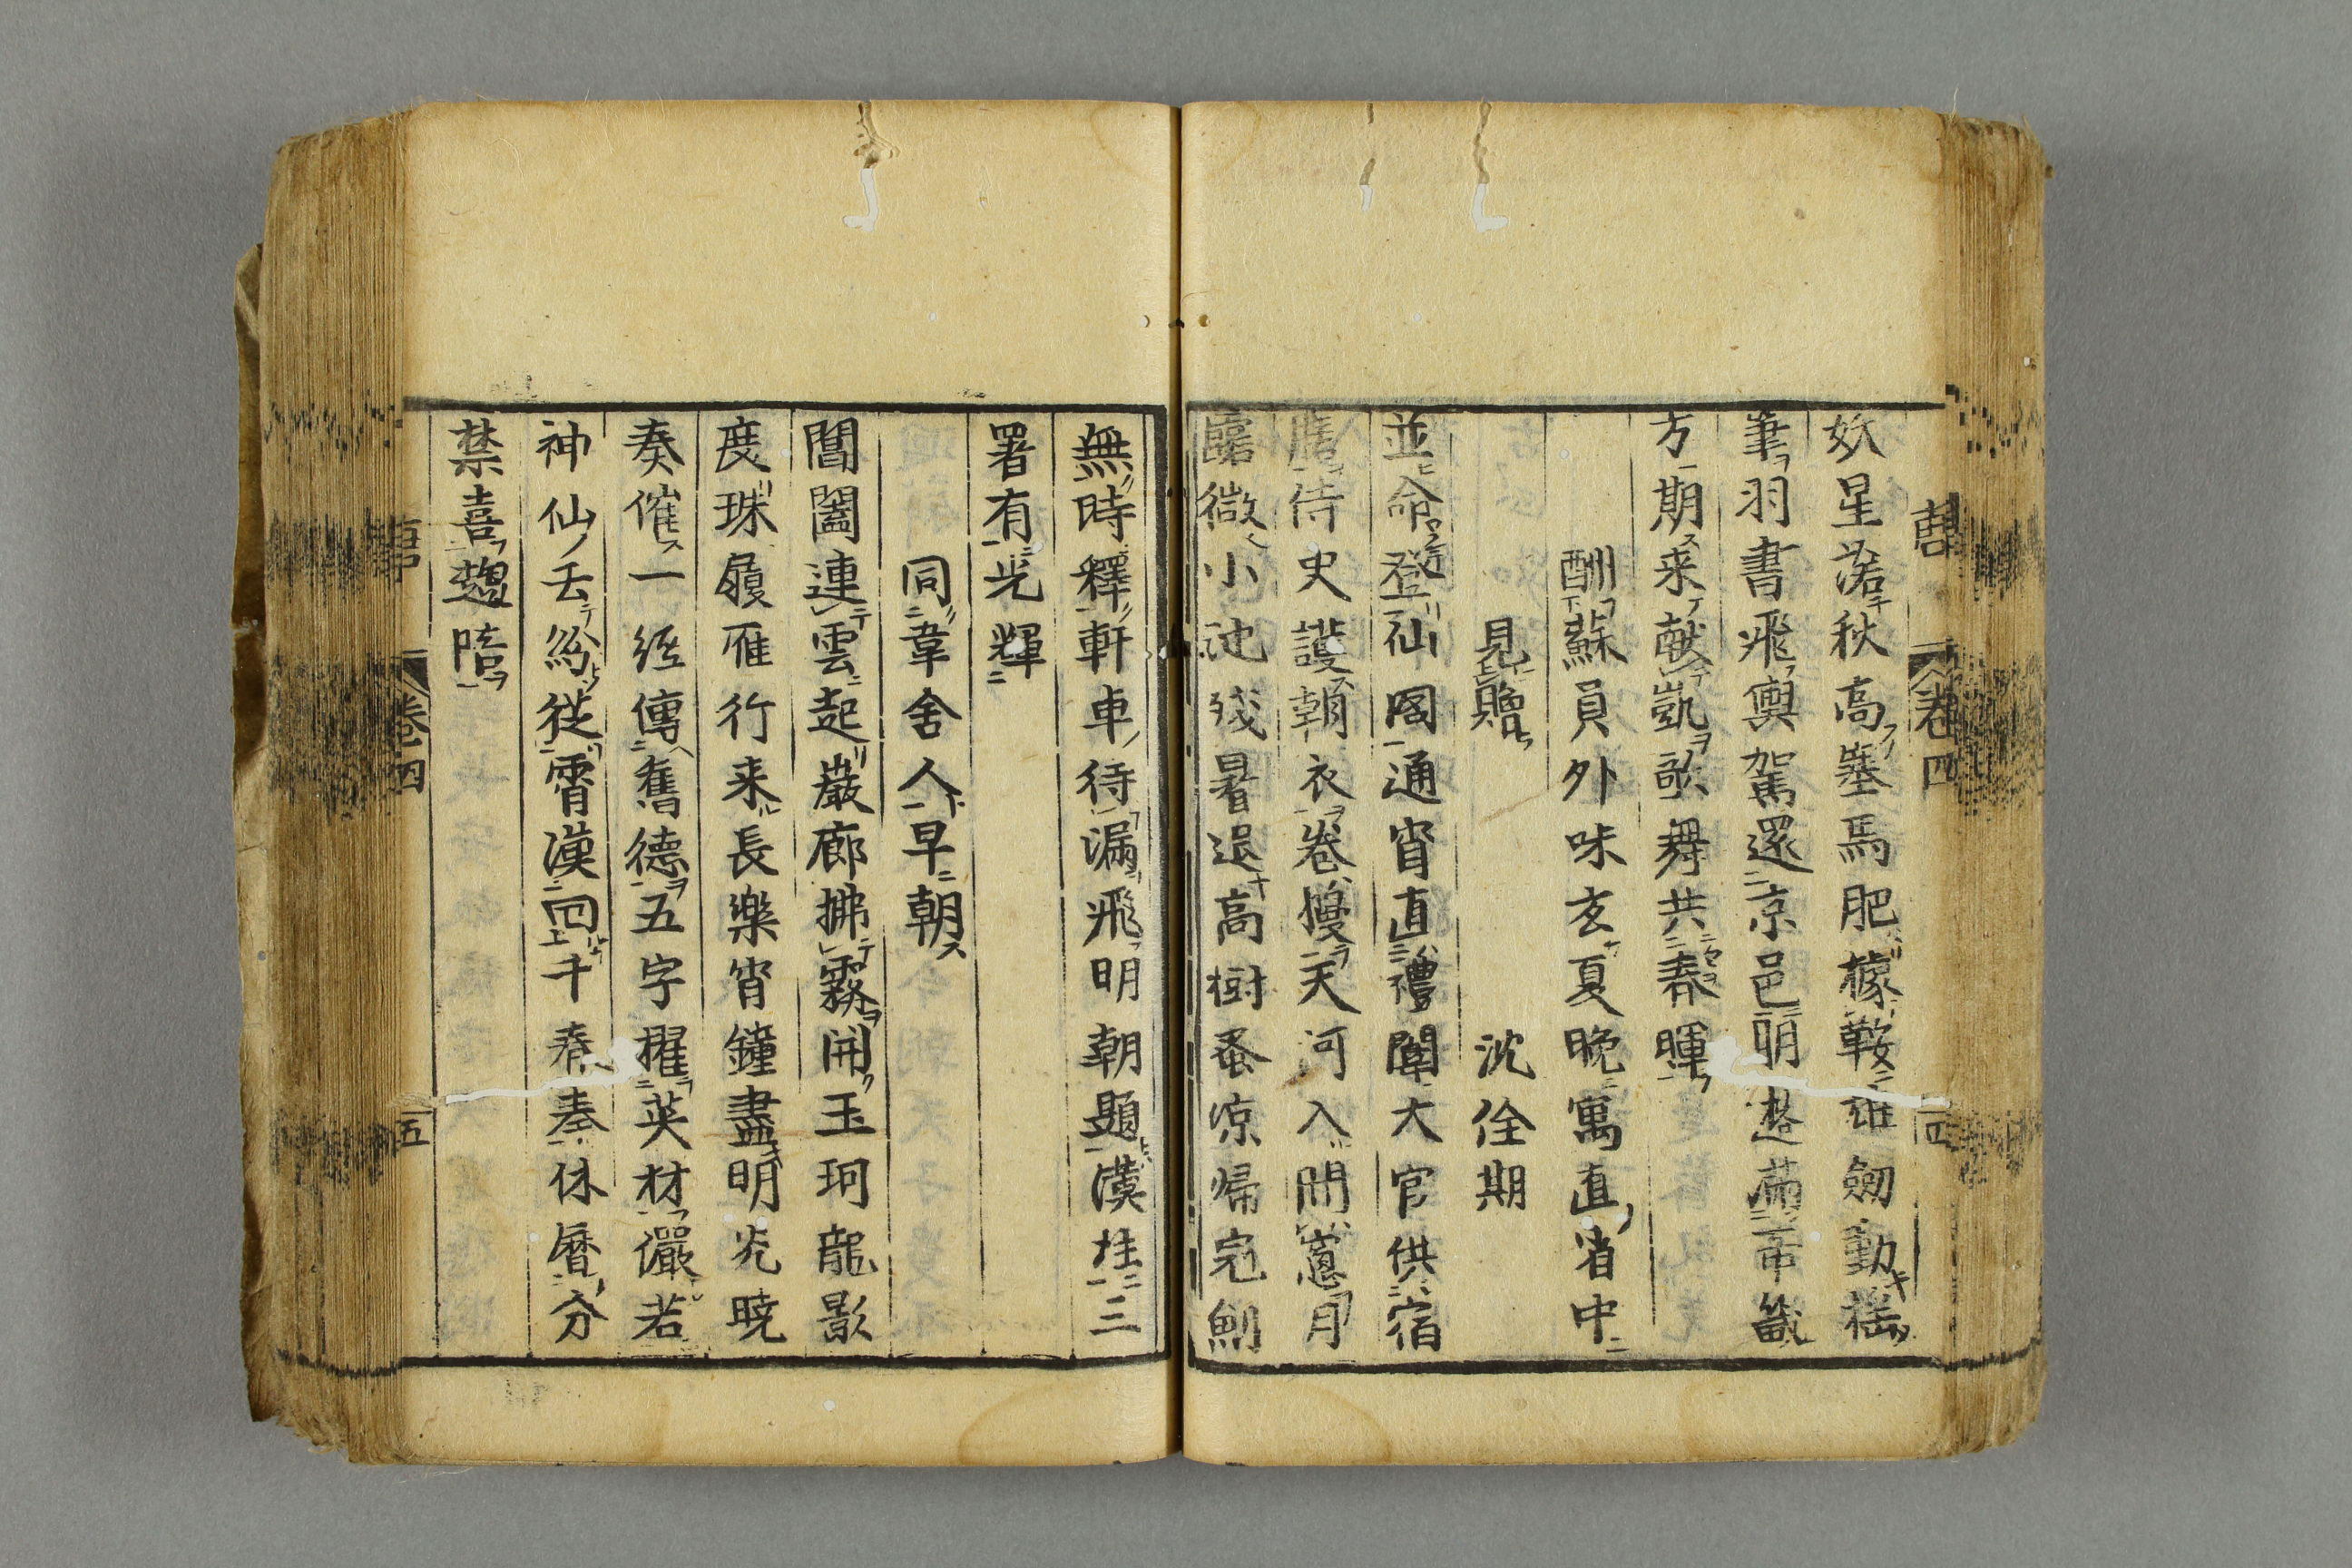 妖星落秋高塞馬肥據鞍雄劔動揺
筆羽書飛輿駕還京邑朋遊満帝畿
方期来献凱歌舞共春暉
酬蘇員外味玄夏晩寓直省中
見贈
沈佺期
並命登仙閣通宵直禮闈大官供宿
膳侍史護朝衣卷幔天河入開窓月
露微小池残暑退高樹蚤凉帰冠劍
無時釋軒車待漏飛明朝題漢柱三
署有光輝
同韋舍人早朝
閶闔連雲起巌廊拂霧開玉珂龍影
度珠履雁行来長楽宵鐘盡明光暁
奏催一経傳舊德五字擢英材儼若
神仙去紛従霄漢回千春奉休暦分
禁喜趨陪
唐
卷四
四
唐
卷四
五